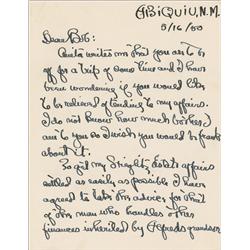 ABIQUIU, N.M.
5/16/50
Dear Bob:
Anita writes me that you are to be
off for a trip of some kind and I have
been wondering if you would like
to be relieved of tending to my affairs.
I do not know how much bother I
am to you so I wish you would be frank
about it.
To get my Stieglitz estate affairs
settled as easily as possible I have
agreed to take him advice for that
of the man who handles other
finances inherited by Alfreds grandson